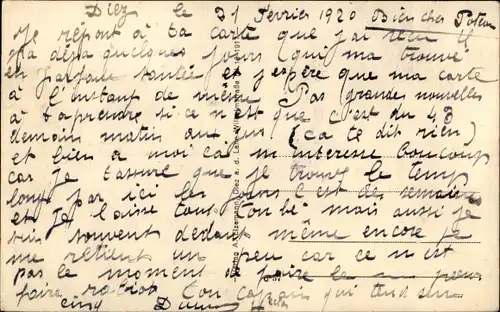 Diez le 21 Fevrier 1920 Bien cher Poteau
Je répont à ta carte que j'ai recu il
y a déja quelques jours qui ma trouvé
en parfaite santée et j'espère que ma carte
à l'instant de même Pas grande nouvelles
à t'aprendre si ce n'est que c'est du 43
demain matin au jus (ca te dit rien)
et bien a moi ca m'interesse boucoup
car je t'assure que je trouve le temps
long par ici les jours c'est des semaines
et je laisse tout tombé mais aussi je
suis souvent dedant même encore je
me retient un peu car ce n'est
pas le moment de faire le
faire rabiot Ton copain qui tend une
cinq